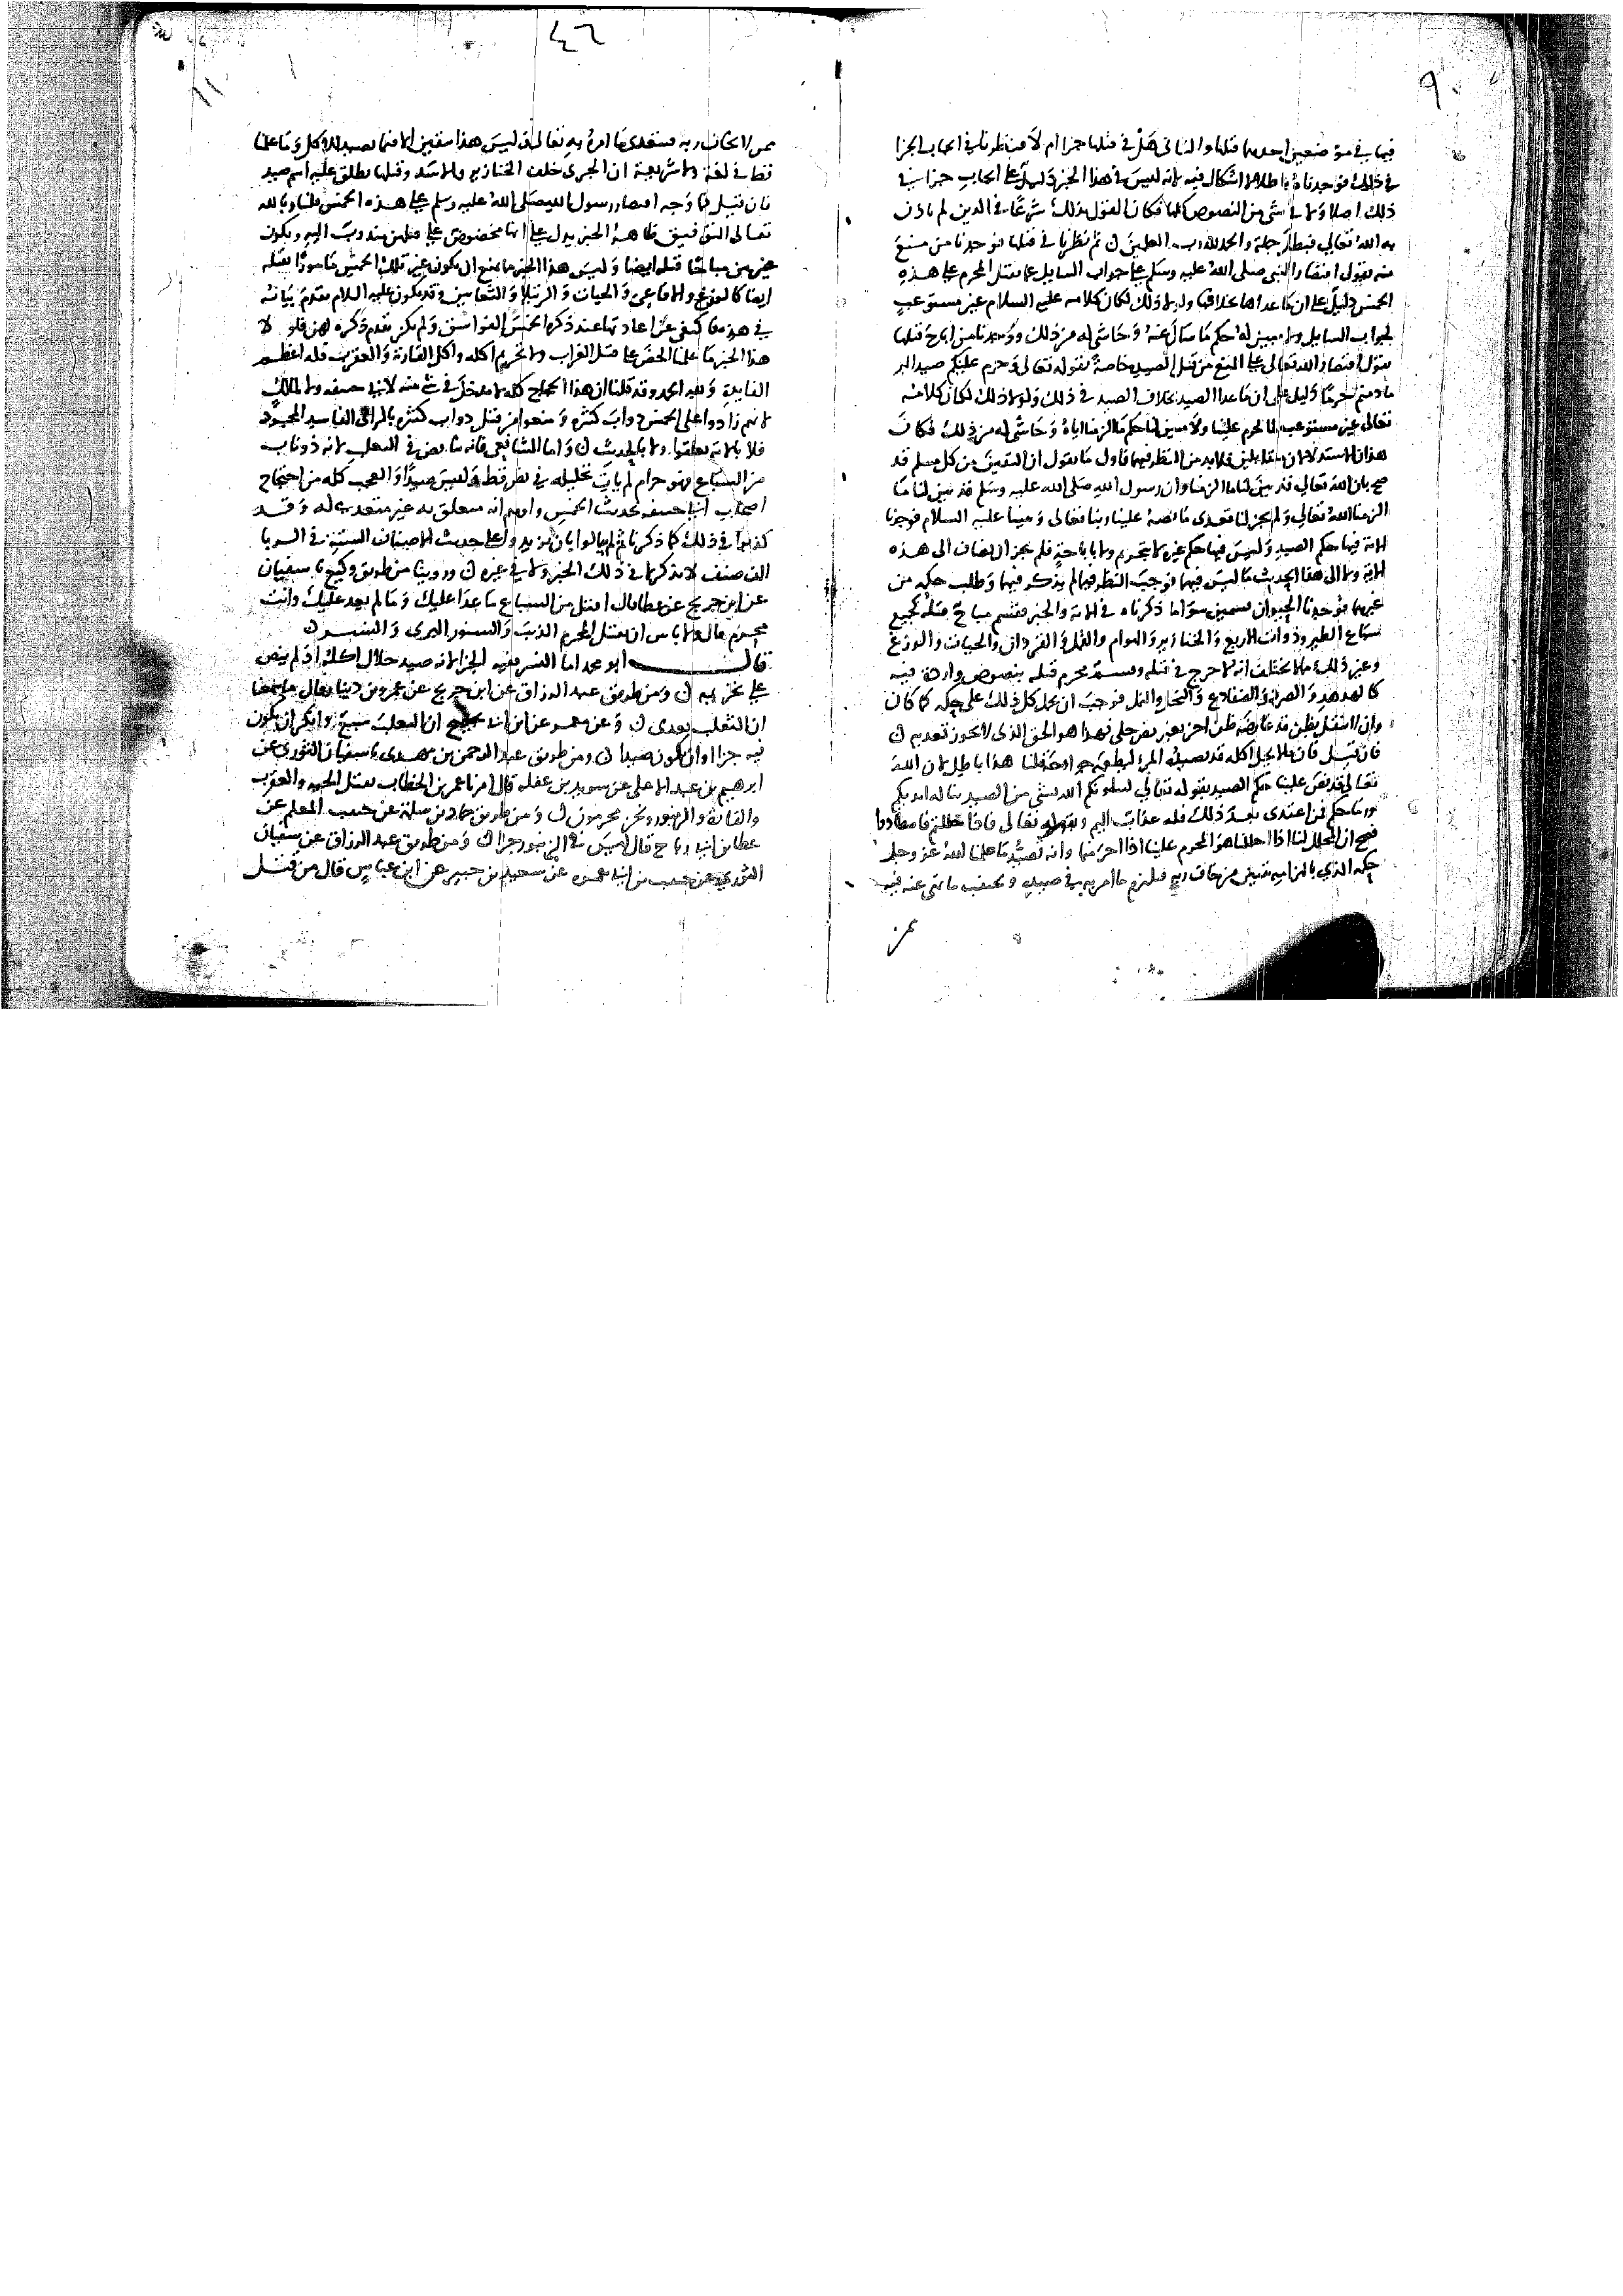 ٩
فيها في موضعين احدهما قتلها والثاني هل في قتلها جزا ام لا فنظرنا في ايجاب الجزا
في ذلك فوجدناه باطلا لا اشكال فيه لانه ليس في هذا الخبر دليل على ايجاب جزا في
ذلك اصلا ولا في شي من النصوص كلها فكان القول بذلك شرعا في الدين لم ياذن
به الله تعالى فبطل جملة والحمد لله رب العلمين ثم نظرنا في قتلها فوجدنا من منع
منه يقول اقتصار النبي صلى الله عليه وسلم على جواب السايل عما يقتل المحرم على هذه
الخمس دليل على ان ما عداها بخلافها ولولا ذلك لكان كلامه عليه السلام غير مستوعب
لجواب السايل ولا مبين له حكم ما سال عنه وحاشى له من ذلك ووجدنا من اباح قتلها
يقول اقتصار الله تعالى على المنع من قتل الصيد خاصة بقوله تعالى وحرم عليكم صيد البر
ما دمتم حرما دليل على ان ما عدا الصيد بخلاف الصيد في ذلك ولولا ذلك لكان كلامه
تعالى غير مستوعب لما حرم علينا ولا مبين لنا حكم ما الزمنا اياه وحاشى له من ذلك فكان
هذان الاستدلالان متقابلين فلا بد من النظر فيهما فاول ما نقول ان اليقين من كل مسلم قد
صح بان الله تعالى قد بين لنا ما الزمنا وان رسول الله صلى الله عليه وسلم قد بين لنا ما
الزمنا الله تعالى ولم يجز لنا تعدى ما نصه علينا ربنا تعالى ونبينا عليه السلام فوجدنا
الاية فيها حكم الصيد وليس فيها حكم غيره لا بتحريم ولا باباحة فلم يجز ان يضاف الى هذه
الاية ولا الى هذا الحديث ما ليس فيهما فوجب النظر فيما لم يذكر فيهما وطلب حكمه من
غيرهما فوجدنا الحيوان قسمين سوا ما ذكرناه في الاية والخبر فقسم مباح قتله كجميع
سباع الطير وذوات الاربع والخنازير والهوام والقمل والقردان والحيات والوزغ
وغير ذلك مما لا يختلف انه لا حرج في قتله وقسم محرم قتله بنصوص واردة فيه
كالهدهد والصرد والضفادع والنحل والنمل فوجب ان يحمل كل ذلك على حكمه كما كان
وان لا ينتقل بظن قد عارضه ظن اخر بغير نص جلي فهذا هو الحق الذي لا يجوز تعديه
فان قيل فان ما لا يحل اكله قد يصيده المرء ليطعمه جوارحه قلنا هذا باطل لان الله
تعالى قد نص علينا حكم الصيد بقوله تعالى ليبلونكم الله بشي من الصيد تناله ايديكم
ورماحكم فمن اعتدى بعد ذلك فله عذاب اليم وبقوله تعالى فاذا حللتم فاصطادوا
فصح ان المحلل لنا اذا احللنا هو المحرم علينا اذا احرمنا وانه تصيد ما علمنا الله عز وجل
حكمه الذي بالتزامه يتبين من يخاف ربه فيلزم ما امر به في صيده ويجتنب ما نهى عنه فيه
من
٤٦
١١
من لا يخاف ربه فيتعدى ما امره به تعالى وليس هذا متيقن الا فيما يصيد للاكل وما علمنا
قط في لغة ولا شريعة ان الجري خلف الخنازير والاسد وقتلها يطلق عليه اسم صيد
فان قيل فما وجه اقتصار رسول الله صلى الله عليه وسلم على هذه الخمس قلنا وبالله
تعالى التوفيق ظاهر الخبر يدل على انها مخصوص على قتلهن مندوب اليه ويكون
غيرهن مباحا قتله ايضا وليس هذا الخبر مما يمنع ان يكون غير تلك الخمس مامورا بقتله
ايضا كالوزغ والافاعي والحيات والرتيلا والثعابين وقد يكون عليه السلام تقدم بيانه
في هذه فاكتفى عن اعادتها عند ذكره الخمس الفواسق ولم يكن تقدم ذكره لهن فلولا
هذا الخبر ما علمنا الحض على قتل الغراب ولا تحريم اكله واكل الفارة والعقرب فله اعظم
الفايدة ولله الحمد وقد قلنا ان هذا الحجاج كله لا مدخل في شي منه لابي حنيفه ولا لمالك
لانهم زادوا على الخمس دواب كثيره ومنعوا من قتل دواب كثيره بالراي الفاسد المجرد
فلا بالاية تعلقوا ولا بالحديث واما الشافعي فانه تناقض في الثعلب لانه ذو ناب
من السباع فهو حرام لم يات تحليله في نص قط وليس صيدا والعجب كله من احتجاج
اصحاب ابي حنيفه بحديث الخمس وايهامهم انه متعلق به غير متعدي له وقد
كذبوا في ذلك كما ذكرنا ثم لم يبالوا بان يزيدوا على حديث الاصناف الستة في الربا
الف صنف لا يذكرها في ذلك الخبر ولا في غيره وروينا من طريق وكيع نا سفيان
عن ابن جريج عن عطا قال اقتل من السباع ما عدا عليك وما لم يعد عليك وانت
محرم قال ولا باس ان يقتل المحرم الذيب والسنور البري والنسر
قال ابو محمد اما النسر ففيه الجزا لانه صيد حلال اكله اذ لم ينص
على تحريمه ومن طريق عبد الرزاق عن ابن جريج عن عمرو بن دينار قال ما سمعنا
ان الثعلب يفدى وعن معمر عن ابن ابي نجيح ان الثعلب سبع وانكر ان يكون
فيه جزا او ان يكون صيدا ومن طريق عبد الرحمن بن مهدي نا سفيان الثوري عن
ابرهيم بن عبد الاعلى عن سويد بن غفله قال امرنا عمر بن الخطاب بقتل الحيه والعقرب
والفارة والزنبور ونحن محرمون ومن طريق حماد بن سلمة عن حبيب المعلم عن
عطا بن ابي رباح قال ليس في الزنبور جزا ومن طريق عبد الرزاق عن سفيان
الثوري عن حبيب بن ابي عمره عن سعيد بن جبير عن ابن عباس قال من قتل